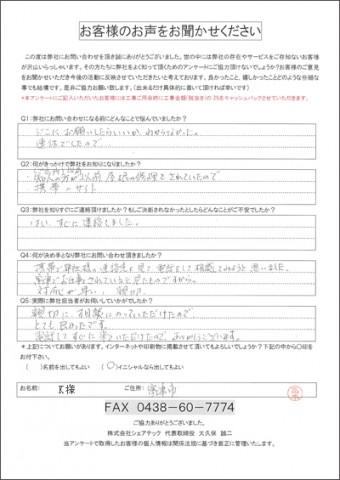 お客様のお声をお聞かせください
この度は弊社にお問い合わせを頂き誠にありがとうございます。世の中には弊社の存在やサービスをご存知ないお客様
が沢山いらっしゃいます。その方たちに弊社をよく知って頂くためのアンケートにご協力頂けないでしょうか?お客様のご意見
をお聞かせいただき今後の活動に反映させていただきたいと考えております。良かったこと、嬉しかったことどのような些細な
事でも結構です。是非ご協力お願い致します。(出来るだけ具体的に書いて頂ければ幸いです)
Q1:弊社にお問い合わせになる前にどんなことで悩んでいましたか?
どこにお願いしたらいいか、わからなかった。
連休でしたので
Q2:何がきっかけで弊社をお知りになりましたか?
知人の方が以前屋根の修理をされていたので
携帯のサイト
Q3:弊社を知りすぐにご連絡頂けましたか?もしご決断されなかったとしたらどんなことがご不安でしたか?
はい、すぐに連絡しました。
Q4:何が決め手となり弊社にお問い合わせ頂きましたか?
携帯で御社様の連絡先を見て電話をして相談してみようと思いました。
対応が早い、親切
Q5:実際に弊社担当者がお伺いしていかがでしたか?
親切に、相談にのっていただけたので
とても良かったです。
電話してすぐに来ていただけたので、ありがとうございます。
*上記についてお願いがあります。インターネットや印刷物に掲載させて頂いてもよろしいでしょうか?下記の中から○印を
お付け下さい。
( )名前を出してもよい (○)イニシャルなら出してもよい
お名前: K様 ご住所: 富津市
FAX 0438-60-7774
ご協力ありがとうございました。
株式会社シェアテック 代表取締役 大久保 誠二
当アンケートで取得したお客様の個人情報は関係法規に基づき厳正に管理いたします。